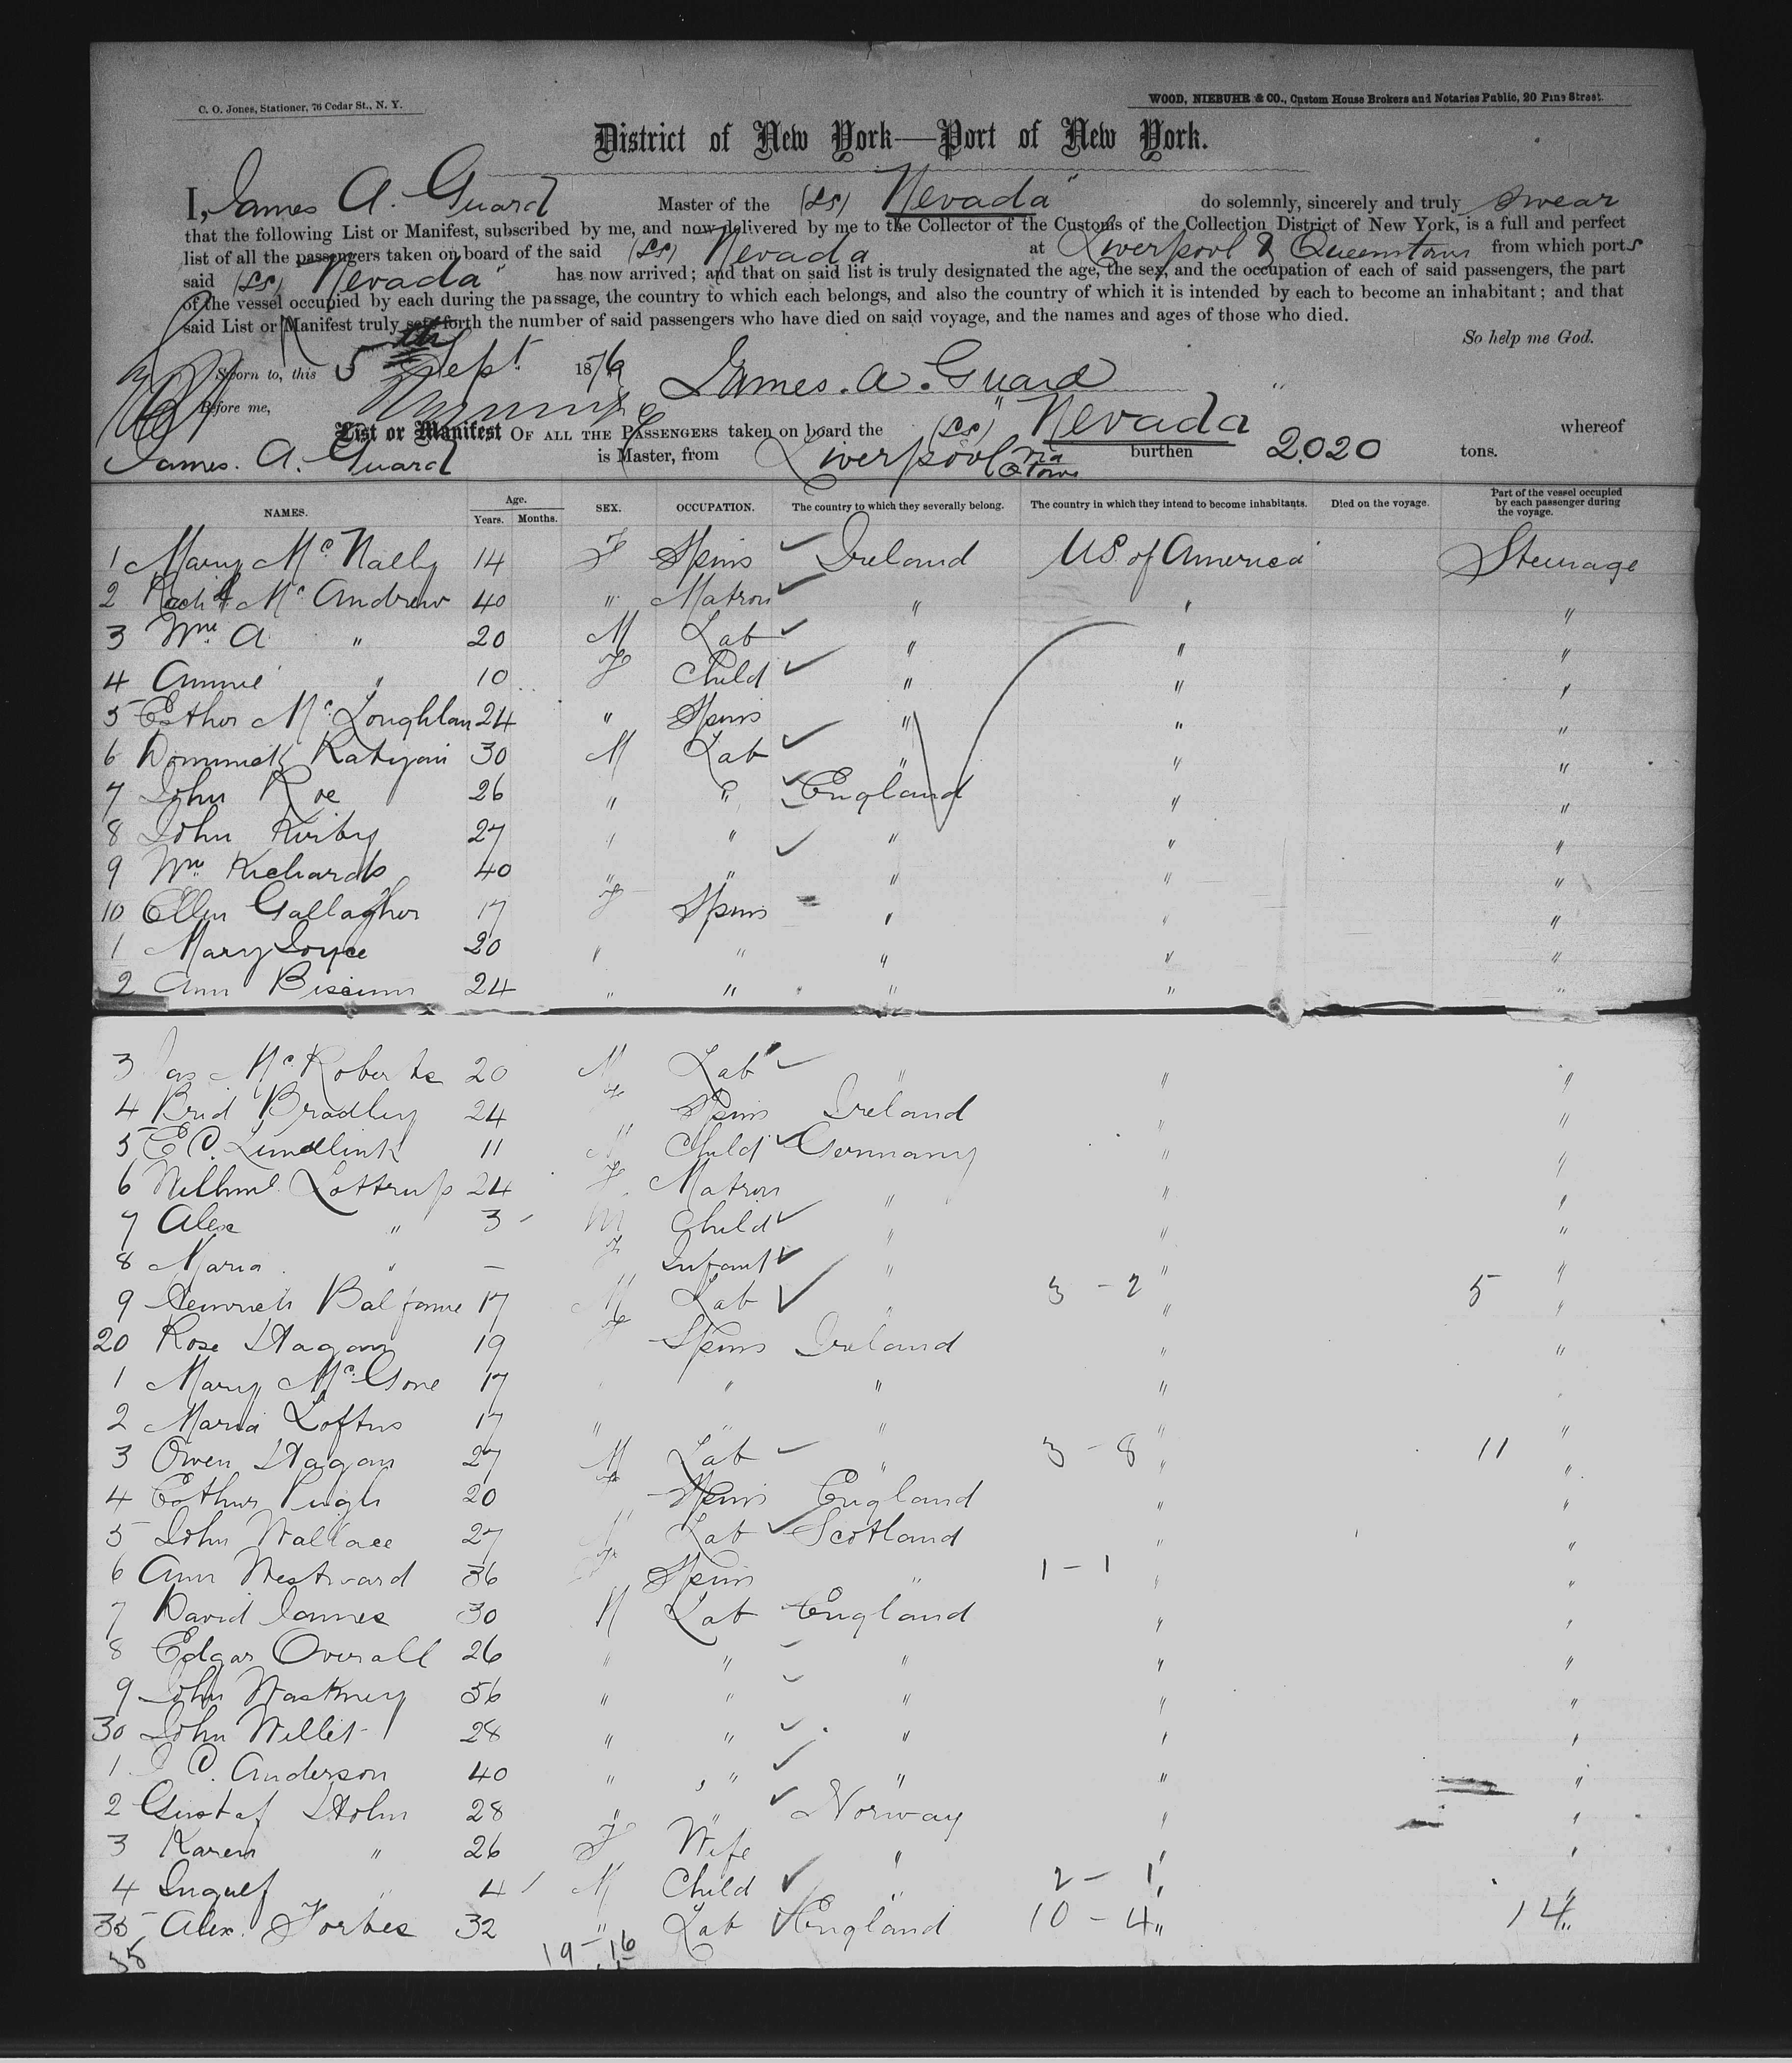 C. O. Jones, Stationer, 76 Cedar St., N. Y.
WOOD, NIEBUHR & CO., Custom House Brokers and Notaries Public, 20 Pine Street.
District of New York—Port of New York.
I, James A. Guard Master of the (SS) "Nevada" do solemnly, sincerely and truly swear
that the following List or Manifest, subscribed by me, and now delivered by me to the Collector of the Customs of the Collection District of New York, is a full and perfect
list of all the passengers taken on board of the said (SS) Nevada at Liverpool & Queenstown from which ports
said (SS) "Nevada" has now arrived; and that on said list is truly designated the age, the sex, and the occupation of each of said passengers, the part
of the vessel occupied by each during the passage, the country to which each belongs, and also the country of which it is intended by each to become an inhabitant; and that
said List or Manifest truly sets forth the number of said passengers who have died on said voyage, and the names and ages of those who died.
So help me God.
Sworn to, this 5th Sept 1876 James. A. Guard
Before me,
List or Manifest OF ALL THE PASSENGERS taken on board the (SS) "Nevada" whereof
James. A. Guard is Master, from Liverpool via Qtown burthen 2,020 tons.
NAMES. Age. Years. Months. SEX. OCCUPATION. The country to which they severally belong. The country in which they intend to become inhabitants. Died on the voyage. Part of the vessel occupied by each passenger during the voyage.
1 Mary Mc Nally 14 F Spins Ireland US. of America Steerage
2 Mc Andrew 40 " Matron " " "
3 Wm A " 20 M Lab " " "
4 Annie " 10 F Child " " "
5 Esther Mc Loughlan 24 " Spins " " "
6 Dominick 30 M Lab " " "
7 John Roe 26 " " England " "
8 John Kirby 27 " " " " "
9 Wm Richards 40 " " " " "
10 Ellen Gallagher 17 F Spins " " "
1 Mary Joyce 20 " " " " "
2 Ann 24 " " " " "
3 Jas Mc Roberts 20 M Lab " " "
4 Brid Bradley 24 F Spins Ireland " "
5 E C. Lundlink 11 M Child Germany " "
6 Wilhme Lottrup 24 F Matron " " "
7 Alex " 3 M Child " " "
8 Maria " — F Infant " " "
9 Heinrich 17 M Lab " 3 - 2 " 5 "
20 Rose Hagan 19 F Spins Ireland " "
1 Mary Mc Gone 17 " " " " "
2 Maria Loftus 17 " " " " "
3 Owen Hagan 27 M Lab " 3 - 8 " 11 "
4 Esther Pugh 20 F Spins England " "
5 John Wallace 27 M Lab Scotland " "
6 Ann Westward 36 F Spins " 1 - 1 " "
7 David James 30 M Lab England " "
8 Edgar Overall 26 " " " " "
9 John 56 " " " " "
30 John Willet 28 " " " " "
1 C. Anderson 40 " " " " "
2 Gustaf Holm 28 " " Norway " "
3 Karen " 26 F Wife " " "
4 Inguef " 4 M Child " 2 - 1 " "
35 Alex. Forbes 32 " Lab England 10 - 4 " 14 "
35 19 - 16